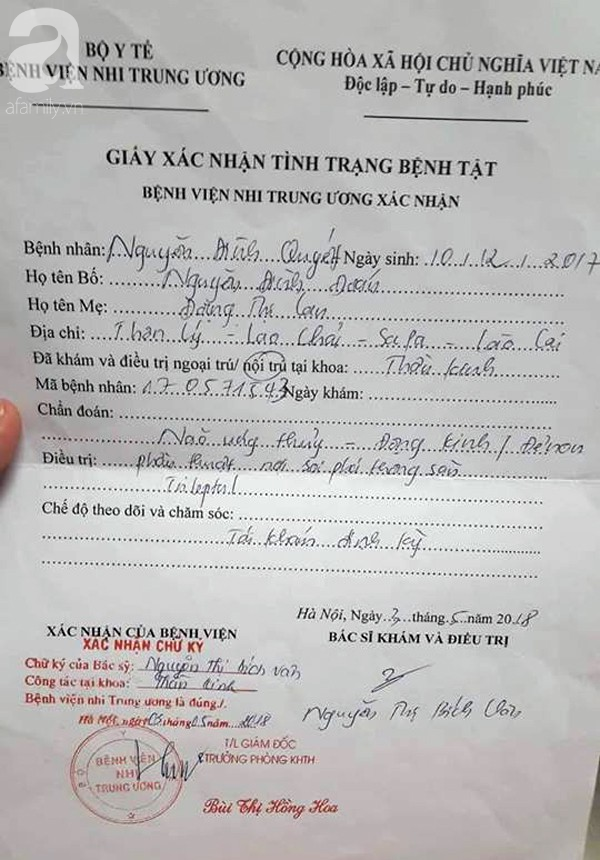 a
afamily.vn
BỘ Y TẾ
BỆNH VIỆN NHI TRUNG ƯƠNG
CỘNG HÒA XÃ HỘI CHỦ NGHĨA VIỆT NA
Độc lập – Tự do – Hạnh phúc
GIẤY XÁC NHẬN TÌNH TRẠNG BỆNH TẬT
BỆNH VIỆN NHI TRUNG ƯƠNG XÁC NHẬN
Bệnh nhân: Nguyễn Đình Quyết Ngày sinh: 10 / 12 / 2017
Họ tên Bố: Nguyễn Đình
Họ tên Mẹ: Đặng Thị Lan
Địa chỉ: Lý - Lao Chải - Sa Pa - Lào Cai
Đã khám và điều trị ngoại trú/ nội trú tại khoa: Thần kinh
Mã bệnh nhân: 170571543 Ngày khám:
Chẩn đoán:
Não úng thủy - Động kinh /
Điều trị: phẫu thuật nội soi phá thông sàn
Trileptal
Chế độ theo dõi và chăm sóc:
Tái khám định kỳ
Hà Nội, Ngày 3 tháng 5 năm 2018
XÁC NHẬN CỦA BỆNH VIỆN
BÁC SĨ KHÁM VÀ ĐIỀU TRỊ
XÁC NHẬN CHỮ KÝ
Chữ ký của Bác sỹ: Nguyễn Thị Bích Vân
Công tác tại khoa: Thần kinh
Bệnh viện nhi Trung ương là đúng./.
Nguyễn Thị Bích Vân
Hà Nội, ngày 03 tháng 05 năm 2018
T/L GIÁM ĐỐC
TRƯỞNG PHÒNG KHTH
BỆNH VIỆN
NHI
TRUNG ƯƠNG
Bùi Thị Hồng Hoa